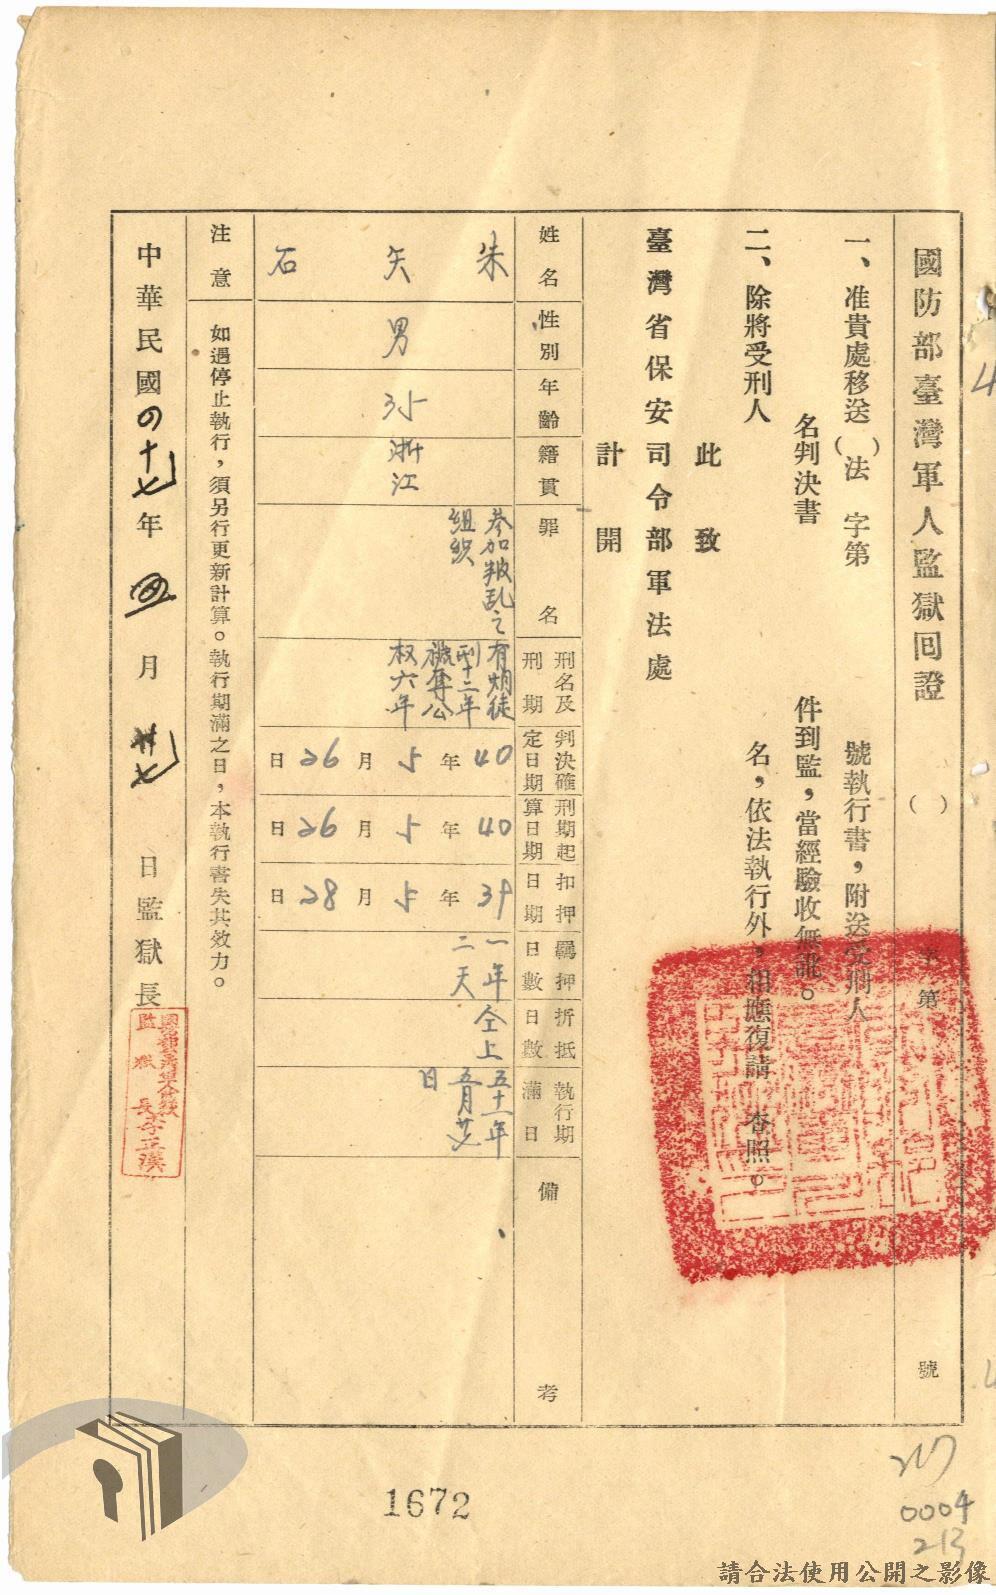 國防部臺灣軍人監獄囘證 （ ） 字第 號
一、准貴處移送（ ）法 字第 號執行書，附送受刑人
名判決書 件到監，當經驗收無訛。
二、除將受刑人 名，依法執行外，相應復請 查照。
此致
臺灣省保安司令部軍法處
計開
姓名 性別 年齡 籍貫 罪名 刑名及刑期 判決確定日期 刑期起算日期 扣押日期 羈押日數 折抵日數 執行期滿日 備考
朱矢石
男
35
浙江
參加叛乱之組织
有期徒刑十二年褫奪公权六年
40年5月26日
40年5月26日
39年5月28日
一年二天
仝上
五十一年五月廿 日
注意 如遇停止執行，須另行更新計算。執行期滿之日，本執行書失其效力。
中華民國四十七年四月廿七日監獄長
國防部臺灣軍人監獄
監獄長李正漢
1672
0004
213
請合法使用公開之影像